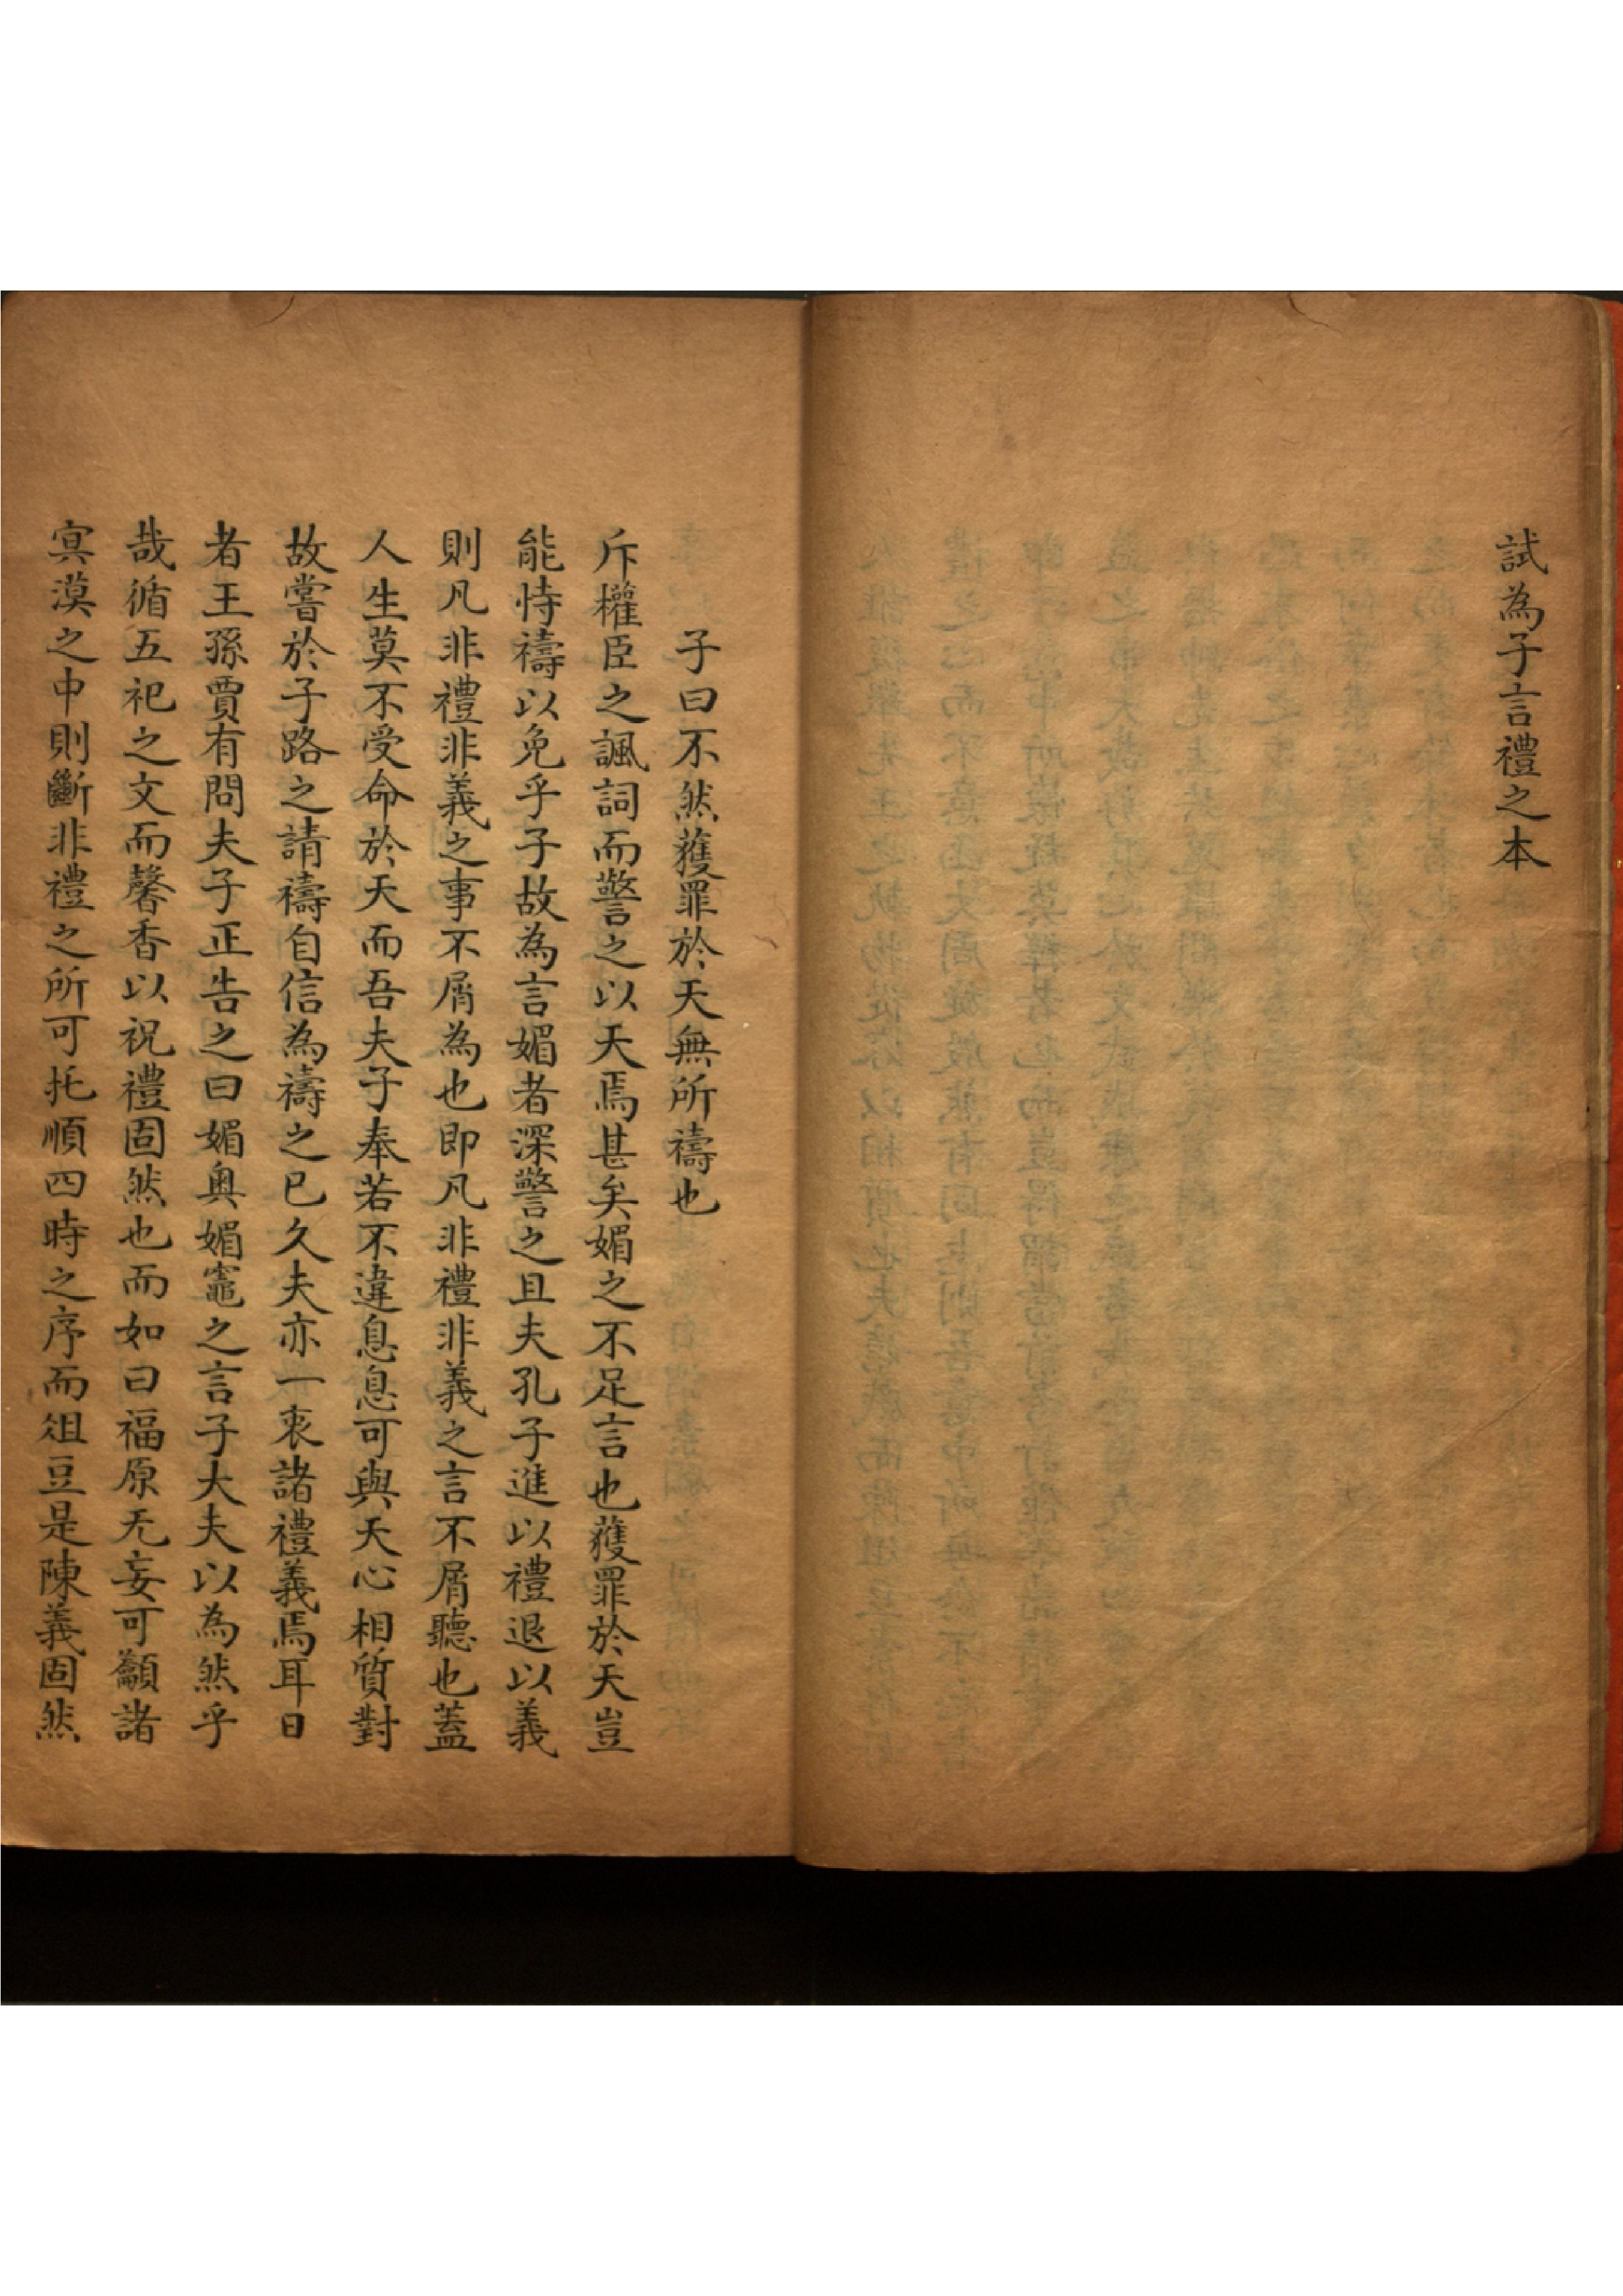 試為子言禮之本
子曰不然獲罪於天無所禱也
斥權臣之諷詞而警之以天焉甚矣媚之不足言也獲罪於天豈
能恃禱以免乎子故為言媚者深警之且夫孔子進以禮退以義
則凡非禮非義之事不屑為也即凡非禮非義之言不屑聽也蓋
人生莫不受命於天而吾夫子奉若不違息息可與天心相質對
故嘗於子路之請禱自信為禱之已久夫亦一衷諸禮義焉耳日
者王孫賈有問夫子正告之曰媚奧媚竈之言子大夫以為然乎
哉循五祀之文而馨香以祝禮固然也而如曰福原无妄可籲諸
寞漠之中則斷非禮之所可托順四時之序而俎豆是陳義固然